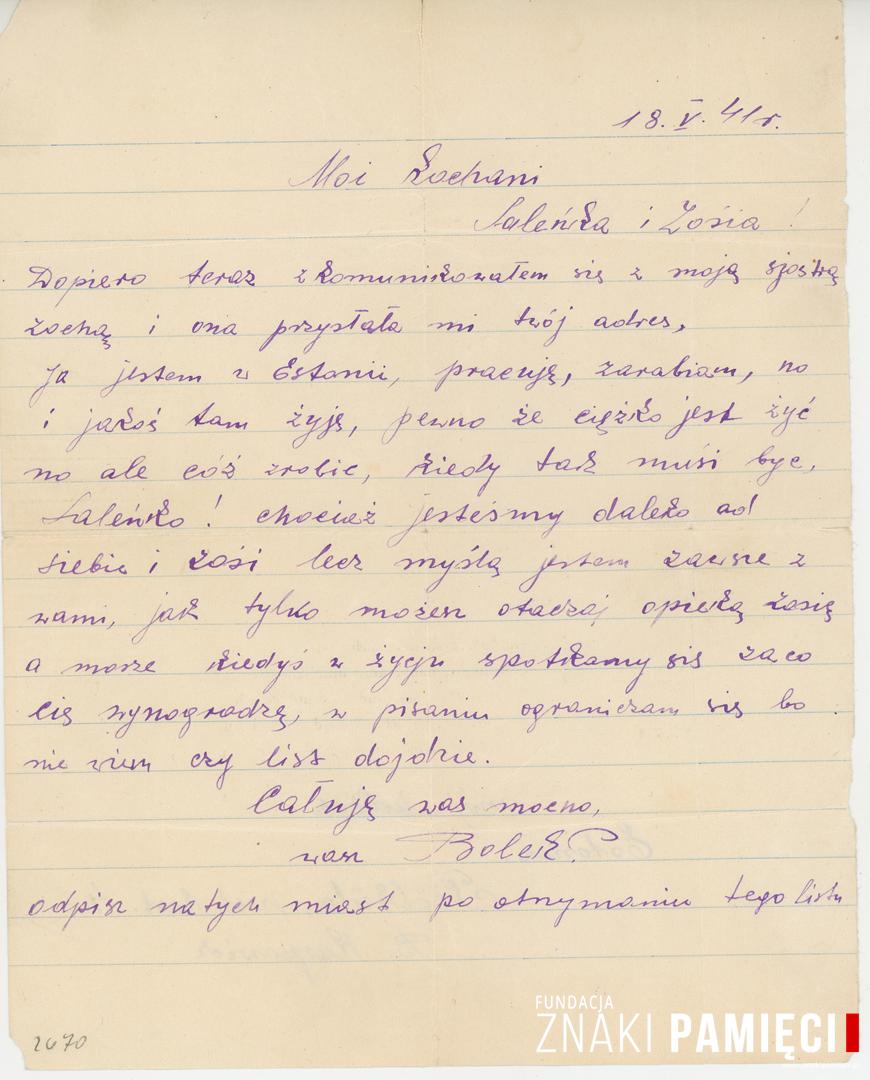 18. V. 41 r.
Moi Kochani
Saleńka i Zosia !
Dopiero teraz zkomunikowałem się z moją sjostrą
Zochą i ona przysłała mi twój adres,
Ja jestem w Estonii, pracuję, zarabiam, no
i jakoś tam żyję, pewno że ciężko jest żyć
no ale cóż zrobic, kiedy tak musi byc,
Saleńko ! chocież jesteśmy daleko od
siebie i Zosi lecz myślą jestem zawsze z
wami, jak tylko możesz otaczaj opieką Zosię
a morze kiedyś w życju spotkamy się zaco
cię wynogradzę, w pisaniu ograniczam się bo
nie wiem czy list dojdzie.
Całuję was mocno,
wasz Bolek
odpisz natych miast po otrzymaniu tego listu
2670
FUNDACJA
ZNAKI PAMIĘCI